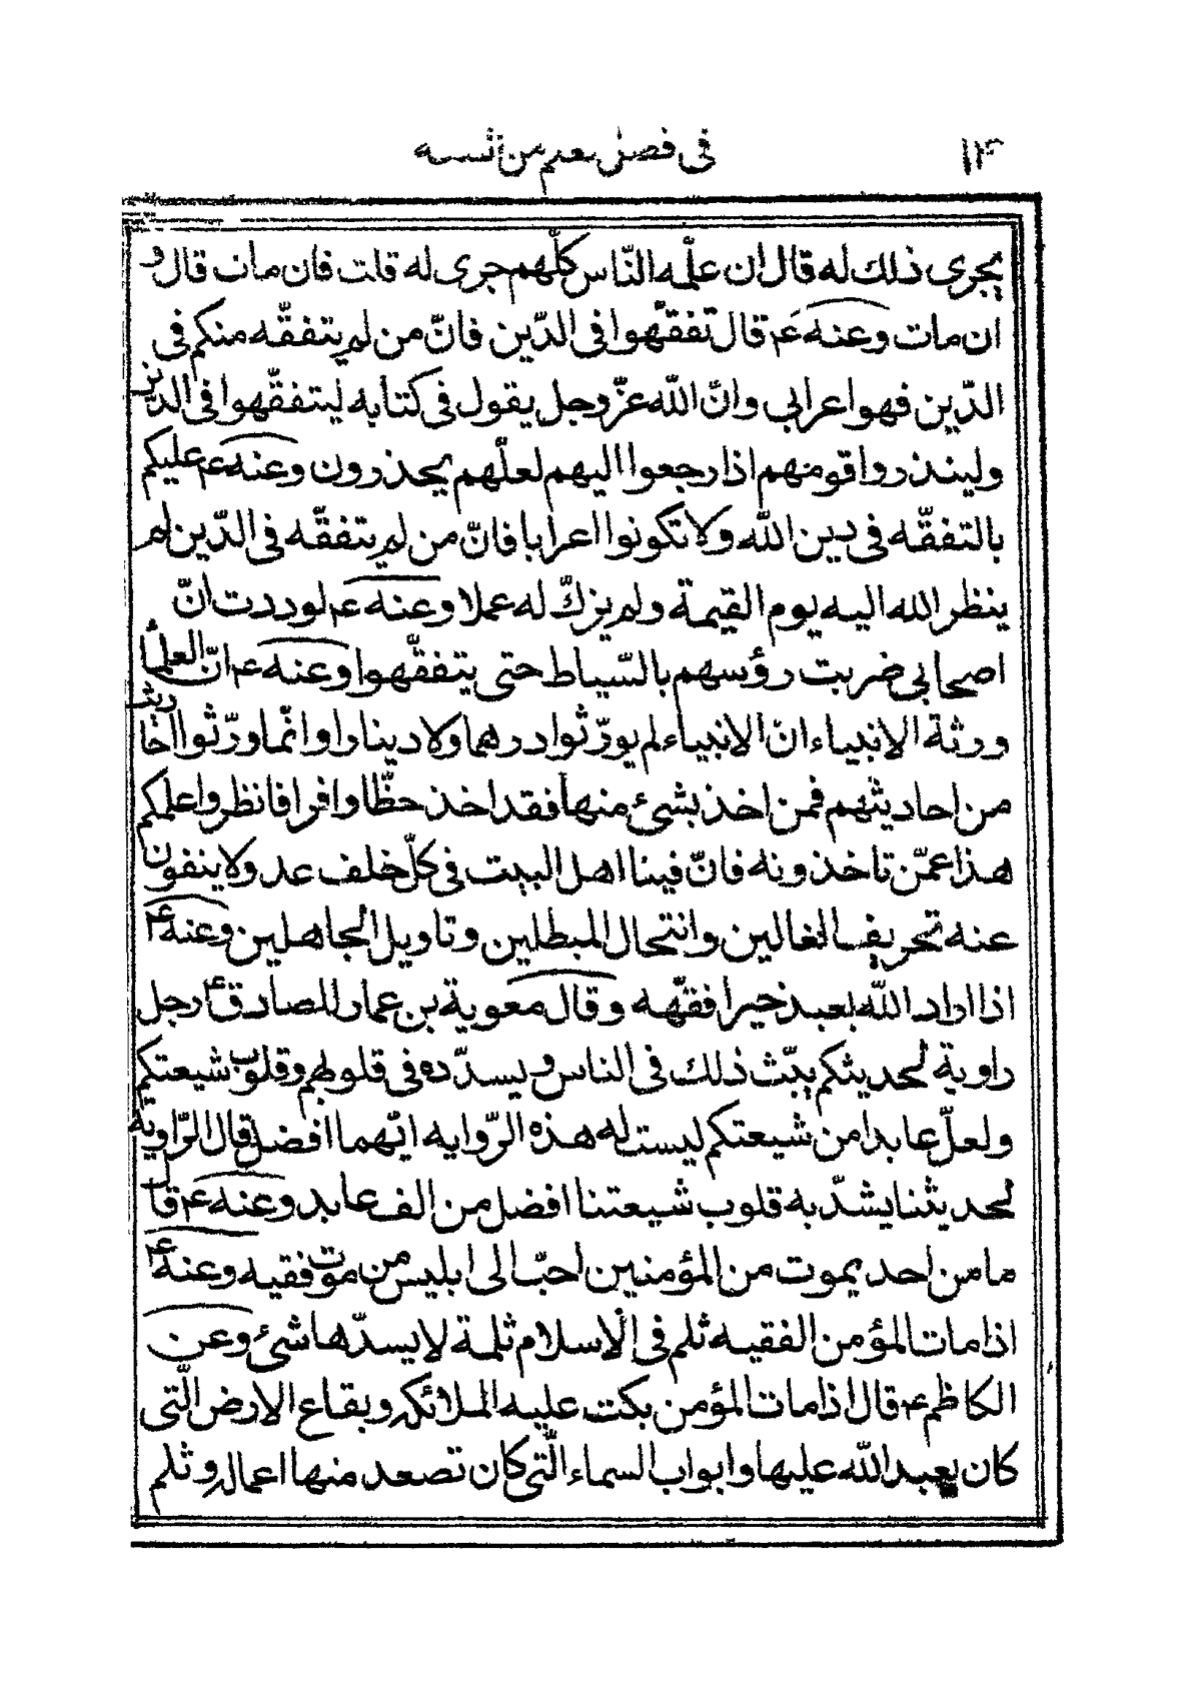 ١٤ فى فضل العلم من السنة
يجرى ذلك له قال ان علّمه النّاس كلّهم جرى له قلت فان مات قال و
ان مات وعنه ع قال تفقّهوا فى الدّين فانّ من لم يتفقّه منكم فى
الدّين فهو اعرابى وانّ اللّه عزّ وجل يقول فى كتابه ليتفقّهوا فى الدّين
ولينذروا قومهم اذا رجعوا اليهم لعلّهم يحذرون وعنه ع عليكم
بالتفقّه فى دين اللّه ولا تكونوا اعرابا فانّ من لم يتفقّه فى الدّين لم
ينظر الله اليه يوم القيمة ولم يزكّ له عملا وعنه ع لوددت انّ
اصحابى ضربت رؤسهم بالسّياط حتى يتفقّهوا وعنه ع انّ العلمآء
ورثة الانبياء انّ الانبياء لم يورّثوا درهما ولا دينارا وانّما ورّثوا احاديث
من احاديثهم فمن اخذ بشئ منها فقد اخذ حظّا وافرا فانظروا علمكم
هذا عمّن تاخذونه فانّ فينا اهل البيت فى كلّ خلف عدولا ينفون
عنه تحريف الغالين وانتحال المبطلين وتاويل الجاهلين وعنه ع
اذا اراد اللّه بعبد خيرا فقّهه وقال معوية بن عمار للصادق ع رجل
راوية لحديثكم يبّث ذلك فى الناس ويسدّده فى قلوبهم وقلوب شيعتكم
ولعلّ عابدا من شيعتكم ليست له هذه الرّوايه ايّهما افضل قال الرّاوية
لحديثنا يشدّ به قلوب شيعتنا افضل من الف عابد وعنه ع قال
ما من احد يموت من المؤمنين احبّ الى ابليس من موت فقيه وعنه ع
اذا مات المؤمن الفقيه ثلم فى الاسلام ثلمة لا يسدّها شئ وعن
الكاظم ع قال اذا مات المؤمن بكت عليه الملائكه وبقاع الارض الّتى
كان يعبد اللّه عليها وابواب السماء الّتى كان تصعد منها اعماله وثلم